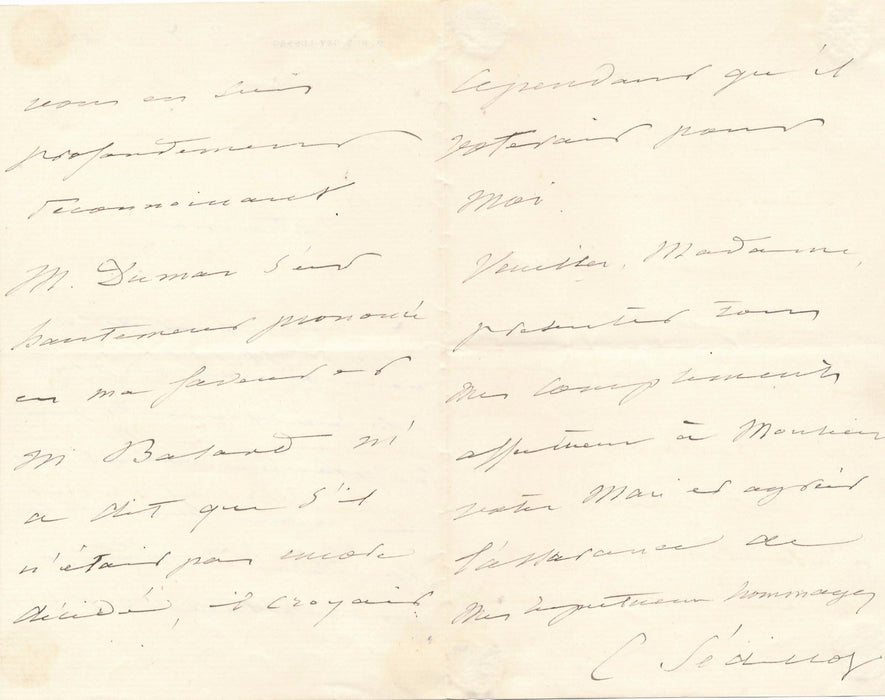 vous en suis
profondement
reconnaissant.
M. Dumas s'est
hautement prononcé
en ma faveur et
M. Balard m'
a dit que s'il
n'était pas encore
décidé, il croyait
cependant qu'il
voterait pour
moi.
Veuillez, Madame,
présenter tous
mes compliments
affectueux à Monsieur
votre Mari et agréer
l'assurance de
mes respectueux hommages
C Sédillot